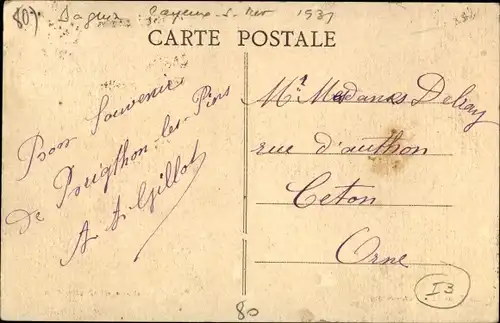 80f Cayeux-s-Mer 1931
CARTE POSTALE
Bon Souvenir
De Brighton-les-Pins
A. A. Gillot
Mr Madame Delzay
rue d'authon
Ceton
Orne
80
I3